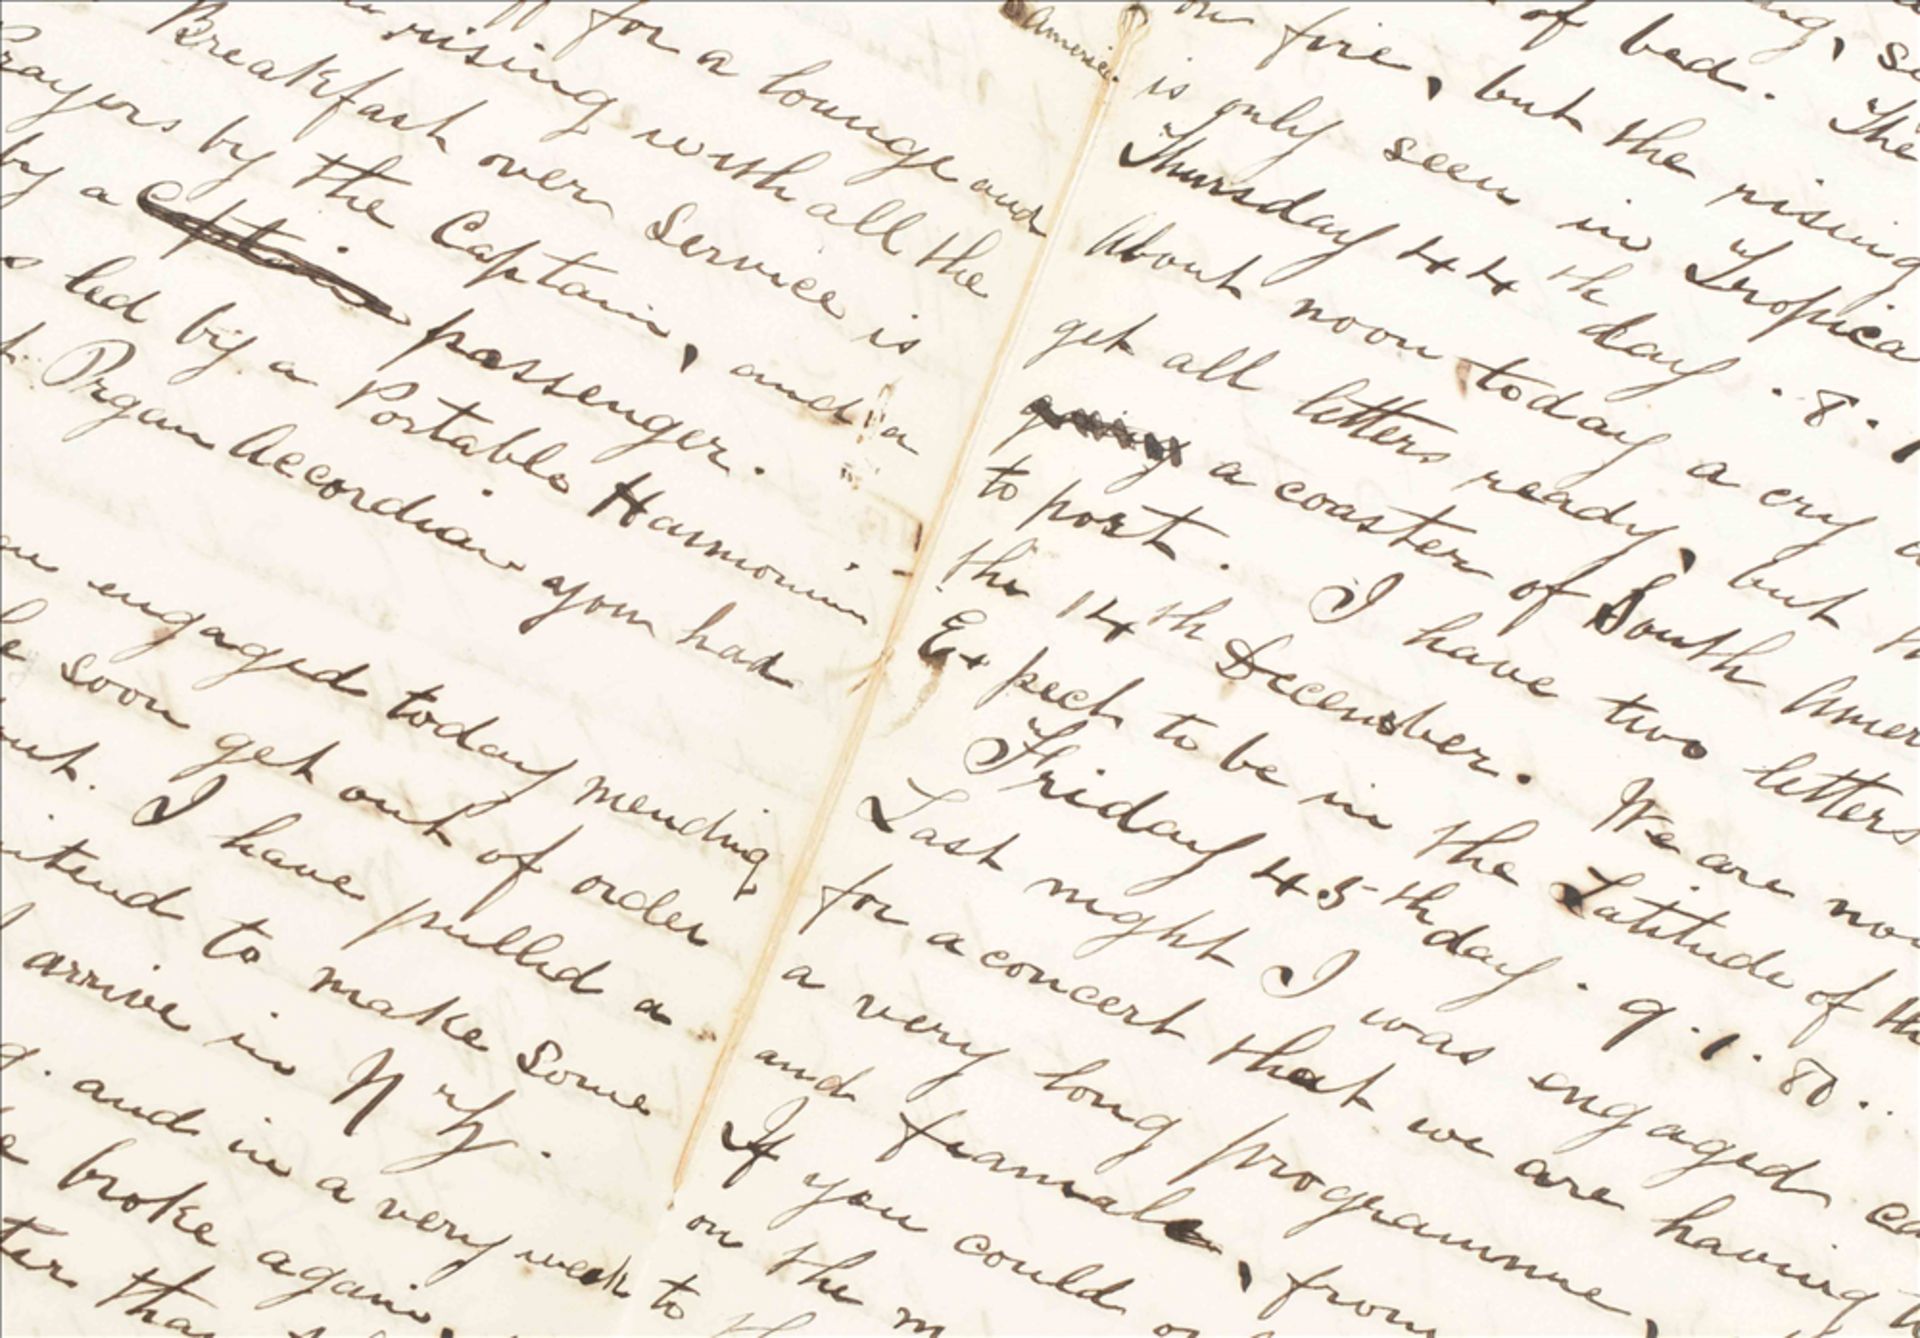 for a lounge and
rising with all the
Breakfast over Service is
Prayers by the Captain, and a
by a Captain passenger.
led by a Portable Harmonium
Organ Accordian you had
engaged today mending
soon get out of order
out. I have pulled a
intend to make some
arrive in N Z.
and in a very week to
broke again,
than
America.
of bed. The
on fire, but the rising
is only seen in Tropica
Thursday 44th day. 8.1
About noon today a cry
get all letters ready, but
a coaster of South Amer
to port. I have two letters
the 14th December. We are now
Expect to be in the Latitude of the
Friday 45th day. 9.1.80.
Last night I was engaged
for a concert that we are having
a very long programme,
and female, from
If you could
on the m